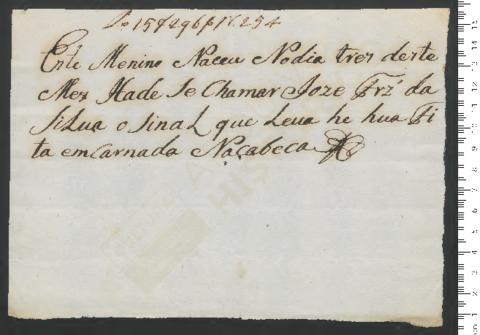 Este Menino Naceu Nodia trez deste
Mez Hade Se Chamar Joze Frz' da
SiLva o SinaL que Leva he hua Fi
ta emcarnada Nacabeca